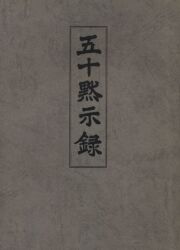 五十黙示録